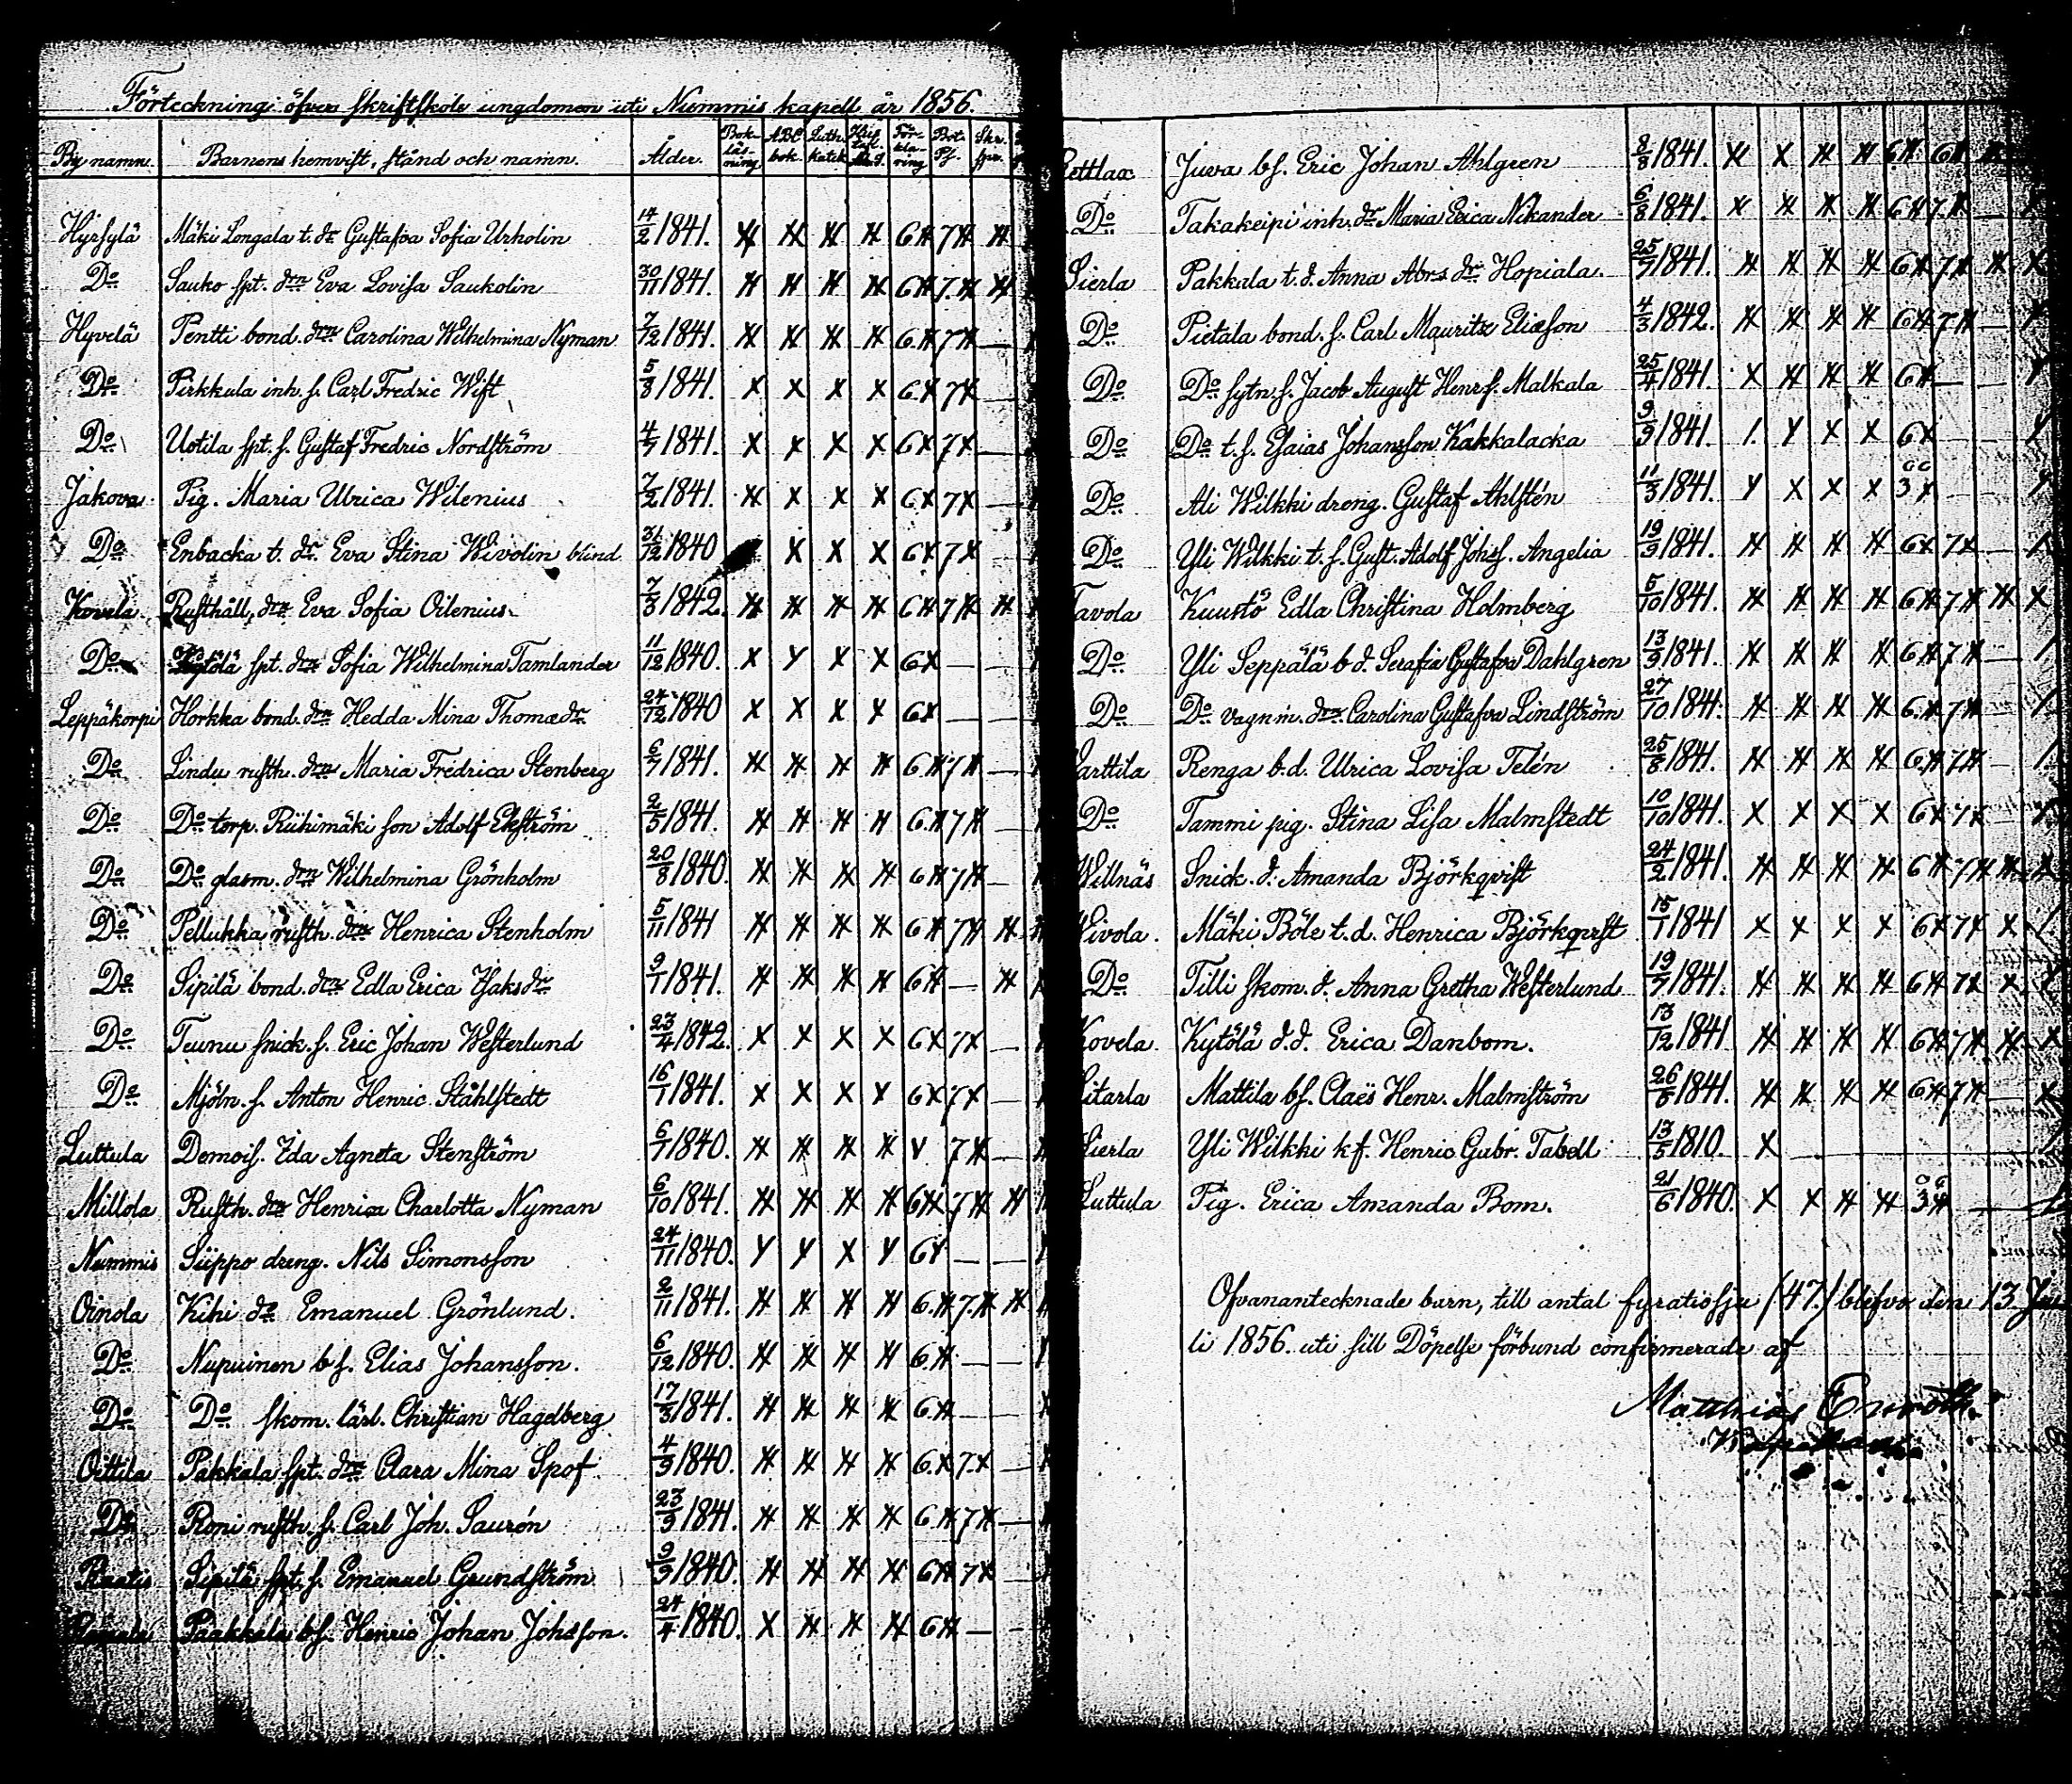 Förteckning öfver skriftskole ungdomen uti Nummis kapell år 1856.
By namn. Barnens hemvist, stånd och namn. Ålder. Bokläsning ABC bok. Luth. katek. Hustafl. Förklaring Bot. Ps. Skr. spr.
Hyrsylä Mäki Longala t. dr Gustafva Sofia Urholin 14/2 1841. 6 7
Do Sauko spt. drn Eva Lovisa Saukolin 30/11 1841. 6 7.
Hyvelä Pentti bond. drn Carolina Wilhelmina Nyman 7/12 1841. 6 7 —
Do Pirkkula inh. s. Carl Fredric Wist 5/8 1841. x x x x 6 x 7 x —
Do Uotila spt. s. Gustaf Fredric Nordström 4/7 1841. x x x x 6 x 7 x —
Jakova Pig. Maria Ulrica Wilenius 7/2 1841. x x x 6 x 7 x —
Do Enbacka t. dr. Eva Stina Wivolin blind 31/12 1840 x x x 6 x 7 x
Kovela Rusthåll. drn Eva Sofia Oilenius. 7/3 1842. 6 7
Do spt. drn Sofia Wilhelmina Tamlander 11/12 1840. x y x x 6 x — —
Leppäkorpi Horkka bond. drn Hedda Mina Thomædr. 24/12 1840 x x x x 6 x — —
Do Lindu rusth. drn Maria Fredrica Stenberg 6/7 1841. 6 7 —
Do Do torp. Riihimäki son Adolf Ekström 2/5 1841. 6. 7 —
Do Do glasm. drn Wilhelmina Grönholm 20/8 1840. 6 7 —
Do Pellukka rusth. drn Henrica Stenholm 5/11 1841 6 7
Do Sipilä bond. drn Edla Erica Isaksdr 9/1 1841. 6 —
Do Teunu snick. s. Eric Johan Westerlund 23/4 1842. x x x x 6 x 7 x —
Do Mjöln. s. Anton Henric Ståhlstedt 16/1 1841. x x x x 6 x 7 x —
Luttula Demois. Ida Agneta Stenström 6/7 1840. v 7 —
Millola Rusth. drn Henrica Charlotta Nyman 6/10 1841. 6 7
Nummis Siippo dreng. Nils Simonsson 24/11 1840. y y x y 6 y — —
Oinola Kihi do Emanuel Grönlund. 2/11 1841. 6. 7.
Do Nupuinen b s. Elias Johansson. 6/12 1840. 6 — —
Do Do skom. lärl. Christian Hagelberg 17/3 1841. 6 — —
Oittila Pakkala spt. drn Clara Mina Spof 4/9 1840. 6. x 7. x —
Do Roni rusth. s. Carl Joh. Saurén 23/9 1841. 6 7 —
Sipilä spt. s. Emanuel Grundström 9/9 1840. 6 7 x —
Paakkala bs. Henric Johan Johsson. 24/4 1840. x 6 — —
Juva bs. Eric Johan Ahlgren 8/8 1841. x 6 6
Do Takakeipi inh. dr Maria Erica Nikander 6/8 1841. x 6 7. —
Sierla Pakkala t. d. Anna Abrs dr Hopiala. 25/7 1841. 6 7 x
Do Pietala bond. s. Carl Mauritz Eliæson 4/3 1842. 6 7 —
Do Do sytn. s. Jacob August Henrs. Malkala 25/4 1841. x 6 — —
Do Do t. s. Esaias Johansson Kakkalacka 9/9 1841. 1. y x x 6 x — —
Do Ali Wilkki dreng. Gustaf Ahlstén 11/3 1841. y x x x 3 x — —
Do Yli Wilkki t. s. Gust. Adolf Johss. Angelia 19/9 1841. 6 x 7 x —
Tavola Kuusto Edla Christina Holmberg 5/10 1841. 6 7 x
Do Yli Seppälä b d. Serafia Gustafva Dahlgren 13/9 1841. 6 7 —
Do Do vagn m. drn. Carolina Gustafva Lindström 27/10 1841. 6. 7 —
Varttila Renga b. d. Ulrica Lovisa Telén 25/8 1841. 6 7 —
Do Tammi pig. Stina Lisa Malmstedt 10/10 1841. x x x x 6 x 7 x —
Willnäs Snick. d. Amanda Björkqvist 24/2 1841. 6 7
Wivola. Mäki Böle t. d. Henrica Björkqvist 15/1 1841 x x x x 6 x 7 x x
Do Tilli skom. d. Anna Gretha Westerlund 19/7 1841. 6 7 x x
Kovela. Kytölä d. d. Erica Danbom. 13/12 1841. 6 7
Sitarla Mattila bs. Claës Henr. Malmström 26/6 1841. 6 7 —
Sierla Yli Wilkki ks. Henric Gabr. Tabell 13/5 1810. x
Luttula Pig. Erica Amanda Bom. 21/6 1840. x x 3 —
Ofvanantecknade barn, till antal fyratiosju (47.) blefvo den 13 Ju
li 1856. uti sitt Döpelse förbund confirmerade af
Matthias Enroth.